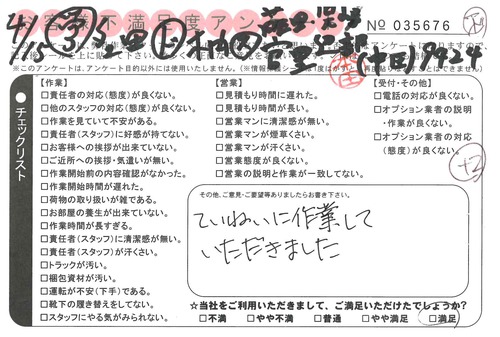 お客様不満足度アンケート
No 035676
※このアンケートは、アンケート目的以外には使用いたしません。
チェックリスト
【作業】
□責任者の対応(態度)が良くない。
□他のスタッフの対応(態度)が良くない。
□作業を見ていて不安がある。
□責任者(スタッフ)に好感が持てない。
□お客様への挨拶が出来ていない。
□ご近所への挨拶・気遣いが無い。
□作業開始前の内容確認がなかった。
□作業開始時間が遅れた。
□荷物の取り扱いが雑である。
□お部屋の養生が出来ていない。
□作業時間が長すぎる。
□責任者(スタッフ)に清潔感が無い。
□責任者(スタッフ)が汗くさい。
□トラックが汚い。
□梱包資材が汚い。
□運転が不安(下手)である。
□靴下の履き替えをしてない。
□スタッフにやる気がみられない。
【営業】
□見積もり時間に遅れた。
□見積もり時間が長い。
□営業マンに清潔感が無い。
□営業マンが煙草くさい。
□営業マンが汗くさい。
□営業態度が良くない。
□営業の説明と作業が一致してない。
【受付・その他】
□電話の対応が良くない。
□オプション業者の説明
・作業が良くない。
□オプション業者の対応
(態度)が良くない。
+2
その他、ご意見・ご要望等ありましたらお書き下さい。
ていねいに作業して
いただきました
☆当社をご利用いただきまして、ご満足いただけたでしょうか?
□不満 □やや不満 □普通 □やや満足 □満足